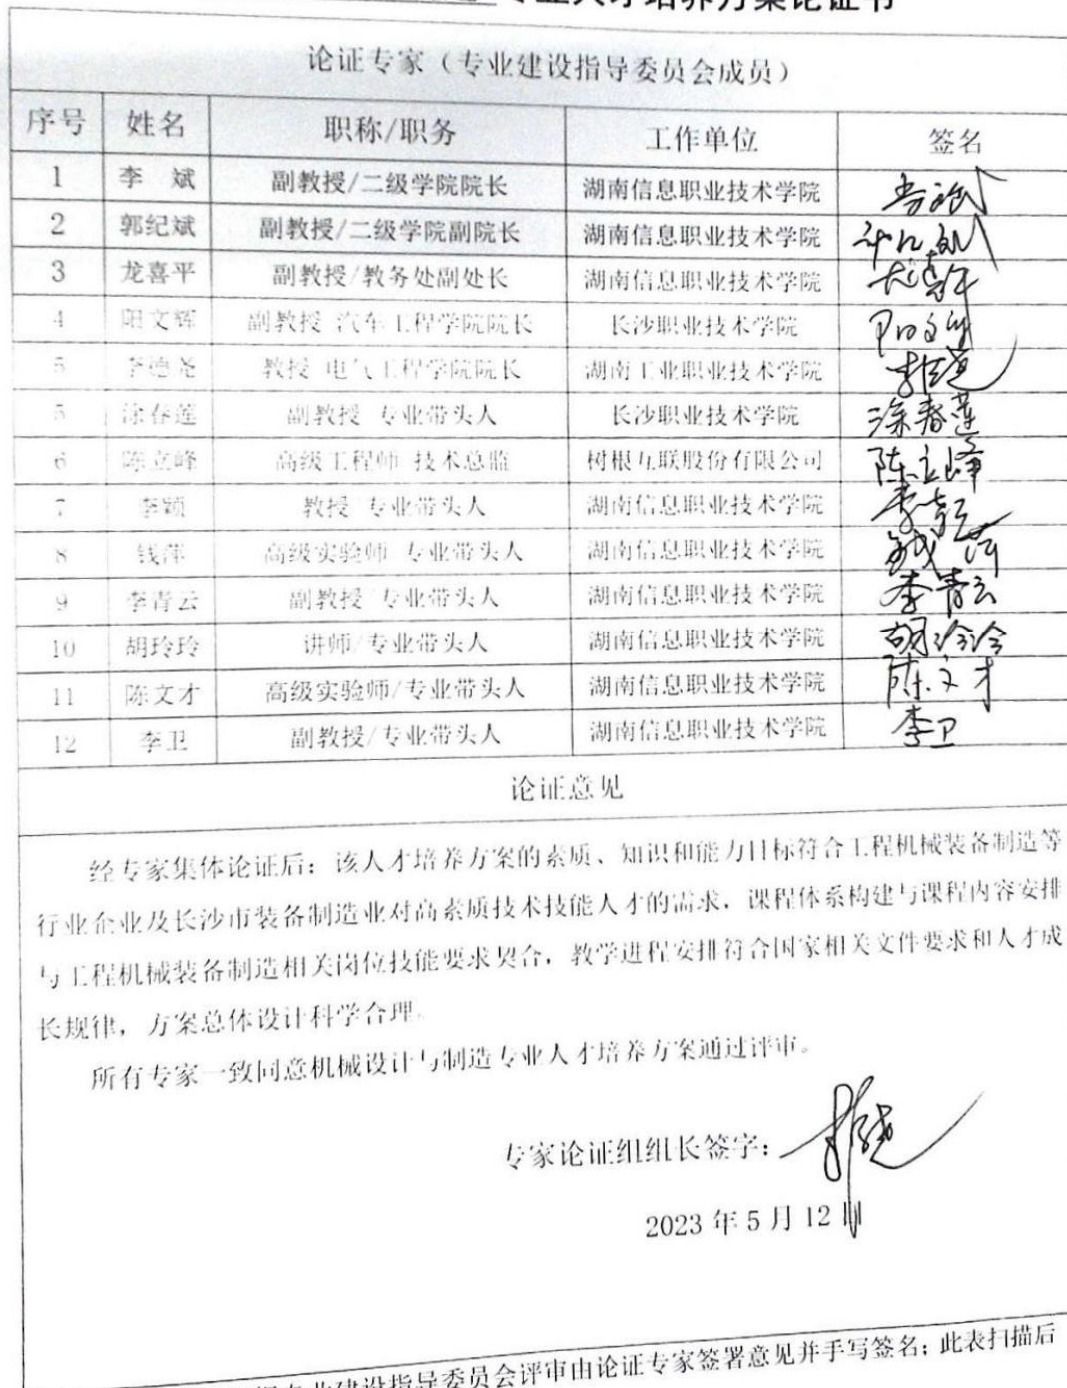 专业人才培养方案论证书
论证专家（专业建设指导委员会成员）
序号 姓名 职称/职务 工作单位 签名
1 李 斌 副教授/二级学院院长 湖南信息职业技术学院
2 郭纪斌 副教授/二级学院副院长 湖南信息职业技术学院
3 龙喜平 副教授/教务处副处长 湖南信息职业技术学院 龙喜平
4 阳文辉 副教授 汽车工程学院院长 长沙职业技术学院 阳文辉
5 李德尧 教授 电气工程学院院长 湖南工业职业技术学院
5 涂春莲 副教授 专业带头人 长沙职业技术学院 涂春莲
6 陈立峰 高级工程师 技术总监 树根互联股份有限公司 陈立峰
7 李颖 教授 专业带头人 湖南信息职业技术学院 李颖
8 钱萍 高级实验师 专业带头人 湖南信息职业技术学院 钱萍
9 李青云 副教授 专业带头人 湖南信息职业技术学院 李青云
10 胡玲玲 讲师/专业带头人 湖南信息职业技术学院 胡玲玲
11 陈文才 高级实验师/专业带头人 湖南信息职业技术学院 陈文才
12 李卫 副教授/专业带头人 湖南信息职业技术学院 李卫
论证意见
经专家集体论证后：该人才培养方案的素质、知识和能力目标符合工程机械装备制造等
行业企业及长沙市装备制造业对高素质技术技能人才的需求，课程体系构建与课程内容安排
与工程机械装备制造相关岗位技能要求契合，教学进程安排符合国家相关文件要求和人才成
长规律，方案总体设计科学合理。
所有专家一致同意机械设计与制造专业人才培养方案通过评审。
专家论证组组长签字：
2023 年 5 月 12 日
专业建设指导委员会评审由论证专家签署意见并手写签名；此表扫描后